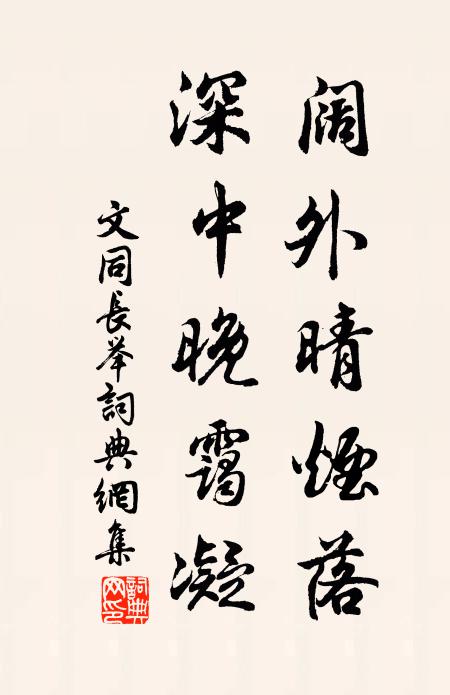 阔外晴煙落
深中晚靄凝
文同長举詞典網集
詞典网印